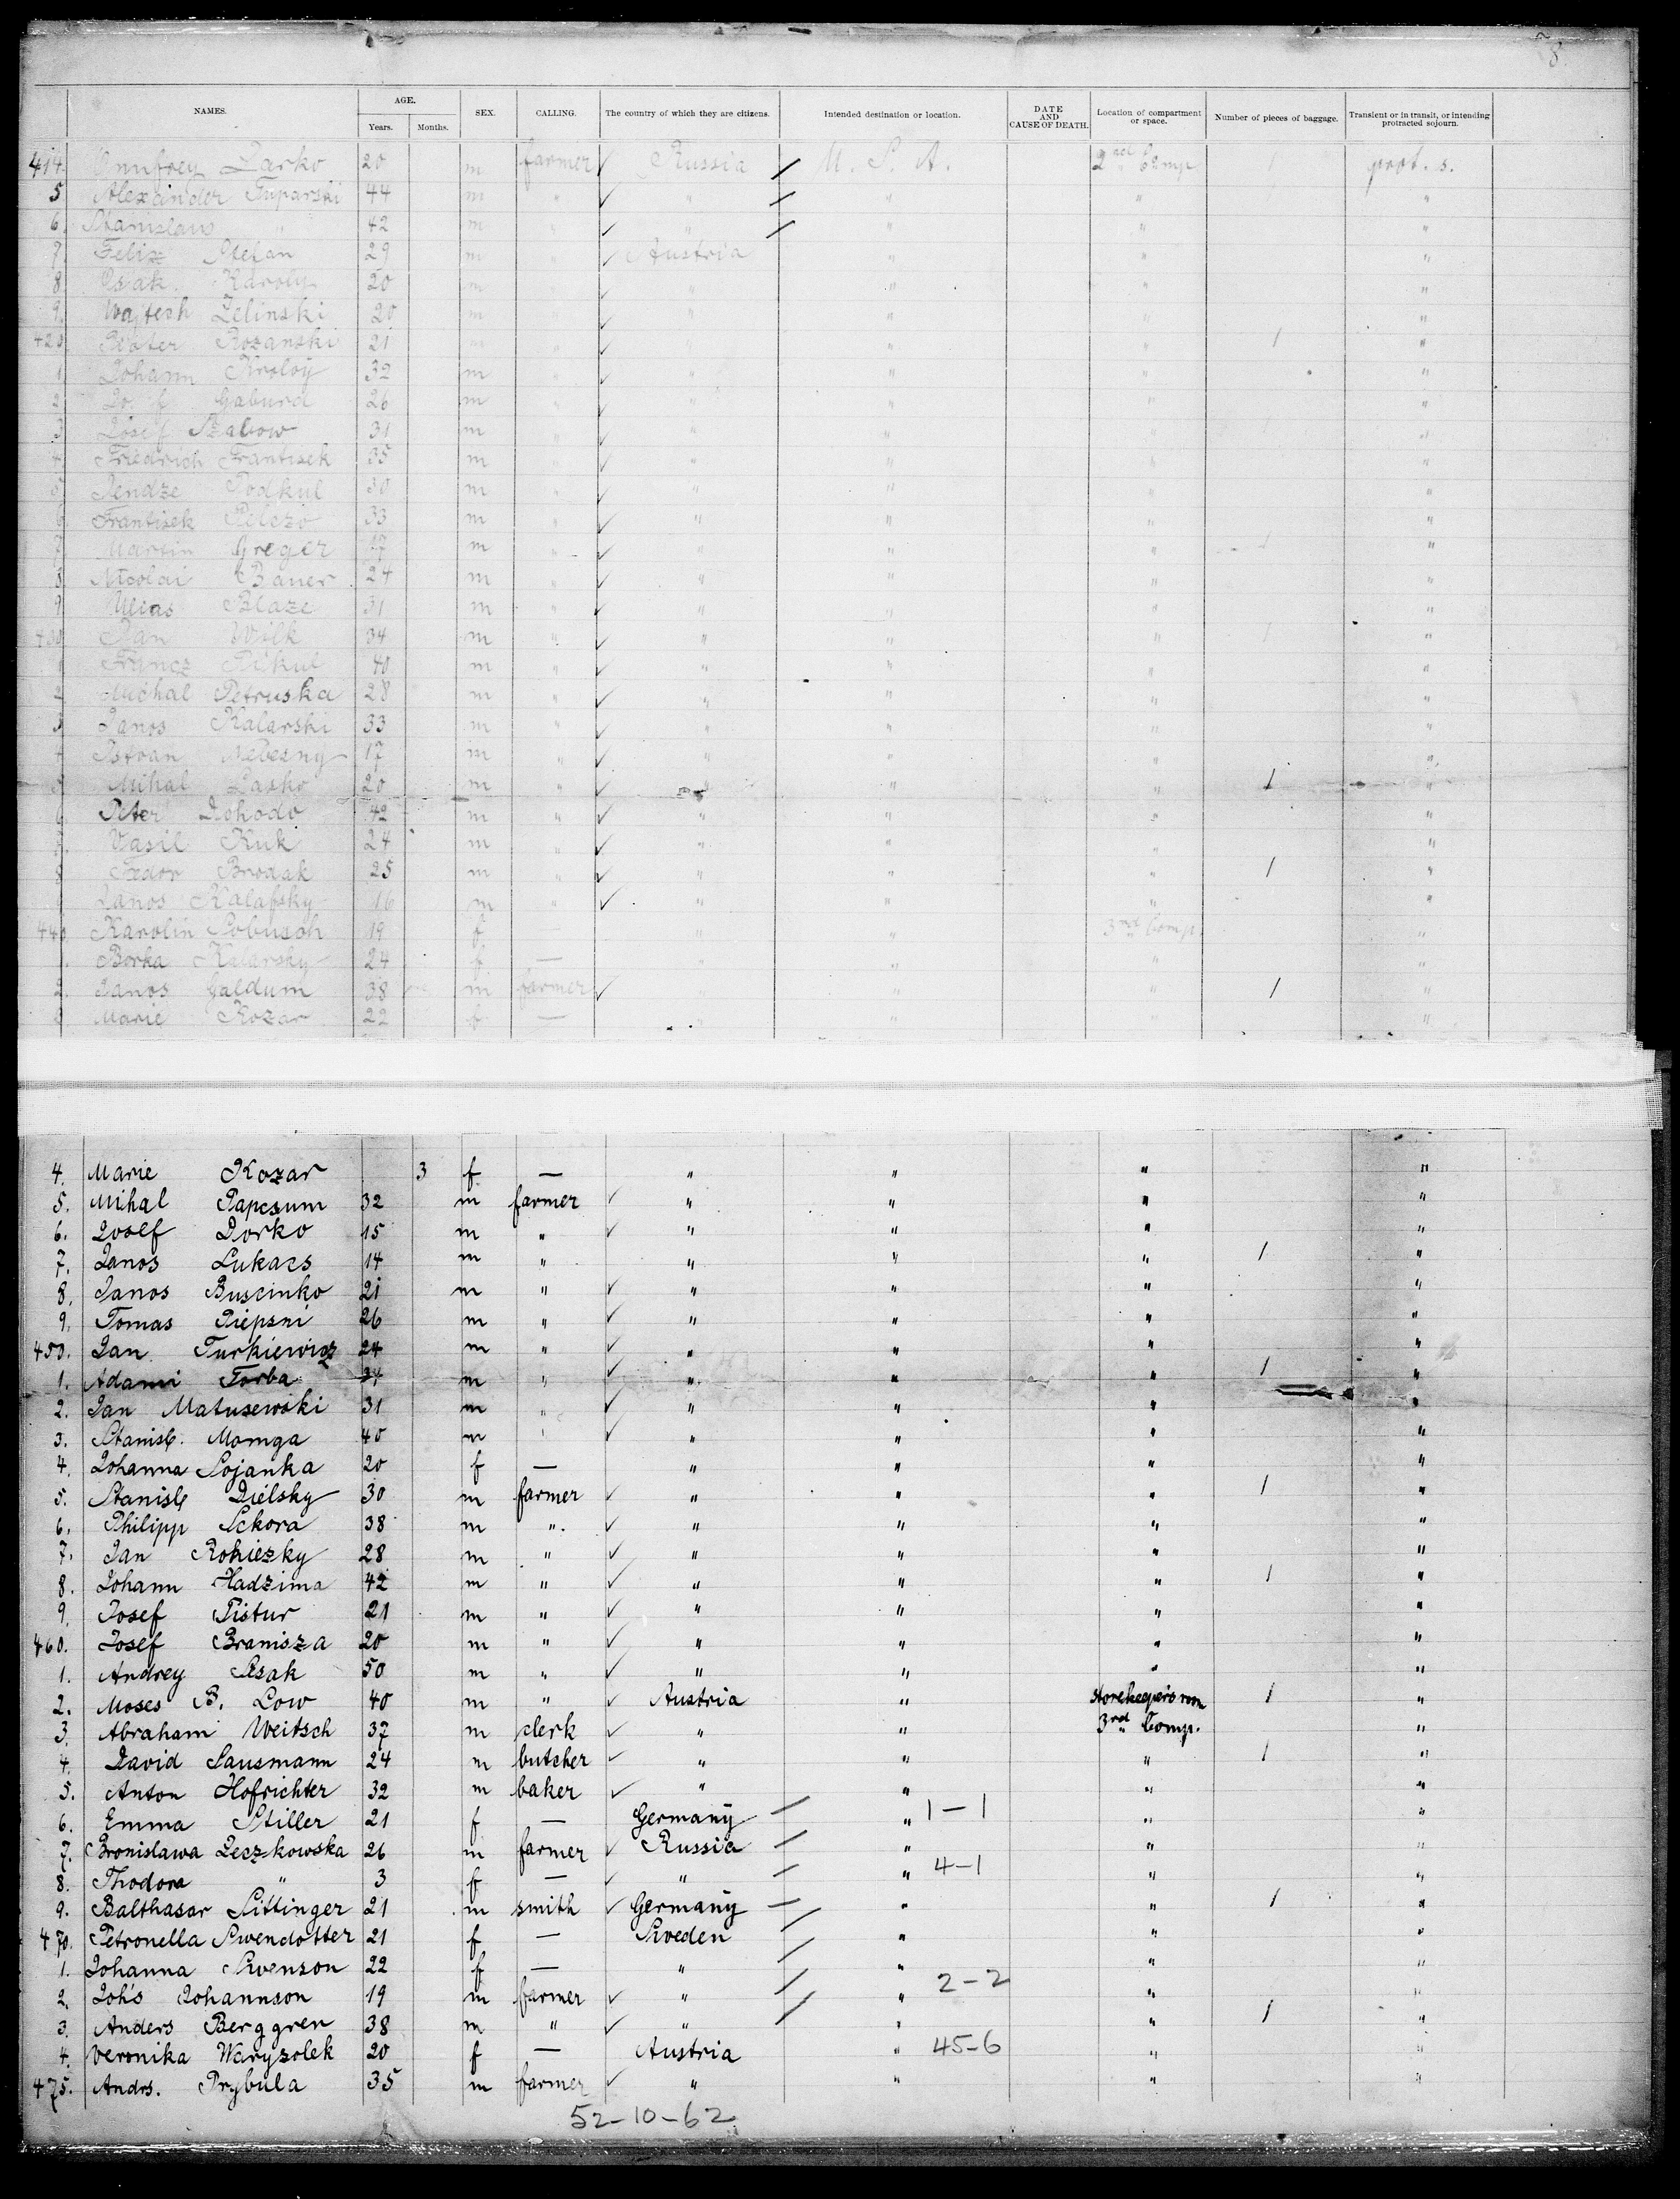 8
NAMES. AGE. Years. Months. SEX. CALLING. The country of which they are citizens. Intended destination or location. DATE AND CAUSE OF DEATH. Location of compartment or space. Number of pieces of baggage. Transient or in transit, or intending protracted sojourn.
414 Zarko 20 m farmer ✓ Russia / U. S. A. 2nd Comp 1 prot. s.
5 Alexander Tuparski 44 m " ✓ " / " " "
6. Stanislaus " 42 m " ✓ " / " " "
7. Felix Stefan 29 m " ✓ Austria " " "
8. Karoly 20 m " ✓ " " " "
9. Wojtech Zelinski 20 m " ✓ " " " "
420 Rozanski 21 " ✓ " " " 1 "
1 Johann Kroloy 32 m " ✓ " " " "
2 Gaburd 26 m " ✓ " " " "
3 Josef Szabow 31 m " ✓ " " " "
4 Friedrich Frantisek 35 m " ✓ " " " "
5 Jendze Podkul 30 m " ✓ " " " "
6 Frantisek 33 m " ✓ " " " "
7 Martin Greger 17 m " ✓ " " " 1 "
8 Nicolai Baner 24 m " ✓ " " " "
9 Blaze 31 m " ✓ " " " "
430 Jan Wilk 34 m " ✓ " " " 1 "
1 Pikul 40 m " ✓ " " " "
2 Michal Petruska 28 m " ✓ " " " "
3 Janos Kalarski 33 m " ✓ " " " "
4 Istvan Nebesny 17 m " ✓ " " " "
5 Mihal Lasko 20 m " ✓ " " " 1 "
6 Peter Dohodo 42 m " ✓ " " " "
7. Vasil Kuk 24 m " ✓ " " " "
8 Fedor Brodak 25 m " ✓ " " " 1 "
Janos Kalafsky 16 m " ✓ " " " "
440 Karolin Sobusch 19 f " " 3rd Comp "
Borka Kalarsky 24 f — " " " "
2. Janos Galdum 38 m farmer ✓ " " " 1 "
3 Marie Kozar 22 f — " " " "
4. Marie Kozar 3 f — " " " "
5. Mihal Papcsum 32 m farmer ✓ " " " "
6. Josef Dorko 15 m " ✓ " " " "
7. Janos Lukacs 14 m " " " " 1 "
8. Janos Buscinko 21 m " ✓ " " " "
9. Tomas Piepsni 26 m " ✓ " " " "
450. Jan Turkiewicz 24 m " ✓ " " " "
1. Adami Torba 34 m " ✓ " " " 1 "
2. Jan Matusewski 31 m " ✓ " " " "
3. Stanisl. Momga 40 m " ✓ " " " "
4. Johanna Sojanka 20 f — " " " "
5. Stanisl Dielsky 30 m farmer ✓ " " " 1 "
6. Philipp Sckora 38 m " ✓ " " " "
7. Jan Rohiezky 28 m " ✓ " " " "
8. Johann Hadzima 42 m " ✓ " " " 1 "
9. Josef Pistur 21 m " ✓ " " " "
460. Josef Branisza 20 m " ✓ " " " "
1. Andrey Sisak 50 m " ✓ " " " "
2. Moses B. Low 40 m " ✓ Austria " storekeepers rm 1 "
3. Abraham Weitsch 37 m clerk ✓ " " 3rd Comp. "
4. David Sausmann 24 m butcher ✓ " " " 1 "
5. Anton Hofrichter 32 m baker ✓ " " " "
6. Emma Stiller 21 f — Germany / " 1-1 " "
7. Bronislawa Leczkowska 26 m farmer ✓ Russia / " " "
8. Thodora " 3 f — ✓ " / " 4-1 " "
9. Balthasar Sittinger 21 m smith ✓ Germany / " " 1 "
470. Petronella Swendotter 21 f — Sweden / " " "
1. Johanna Swenson 22 f — " / " " "
2. Joh's Johannson 19 m farmer ✓ " / " 2-2 " "
3. Anders Berggren 38 m " ✓ " / " " 1 "
4. Veronika Waryzolek 20 f — Austria " 45-6 " "
475. Andrs. Prybula 35 m farmer ✓ " " " "
52-10-62